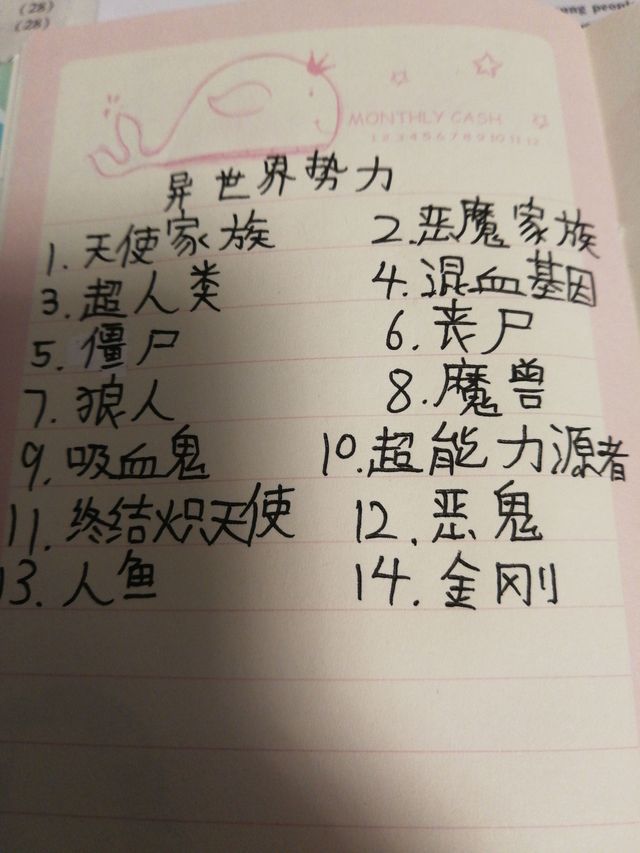 (28)
(28)
ung people
MONTHLY CASH
1 2 3 4 5 6 7 8 9 10 11 12
异世界势力
1. 天使家族 2. 恶魔家族
3. 超人类 4. 混血基因
5. 僵尸 6. 丧尸
7. 狼人 8. 魔兽
9. 吸血鬼 10. 超能力源者
11. 终结炽天使 12. 恶鬼
13. 人鱼 14. 金刚